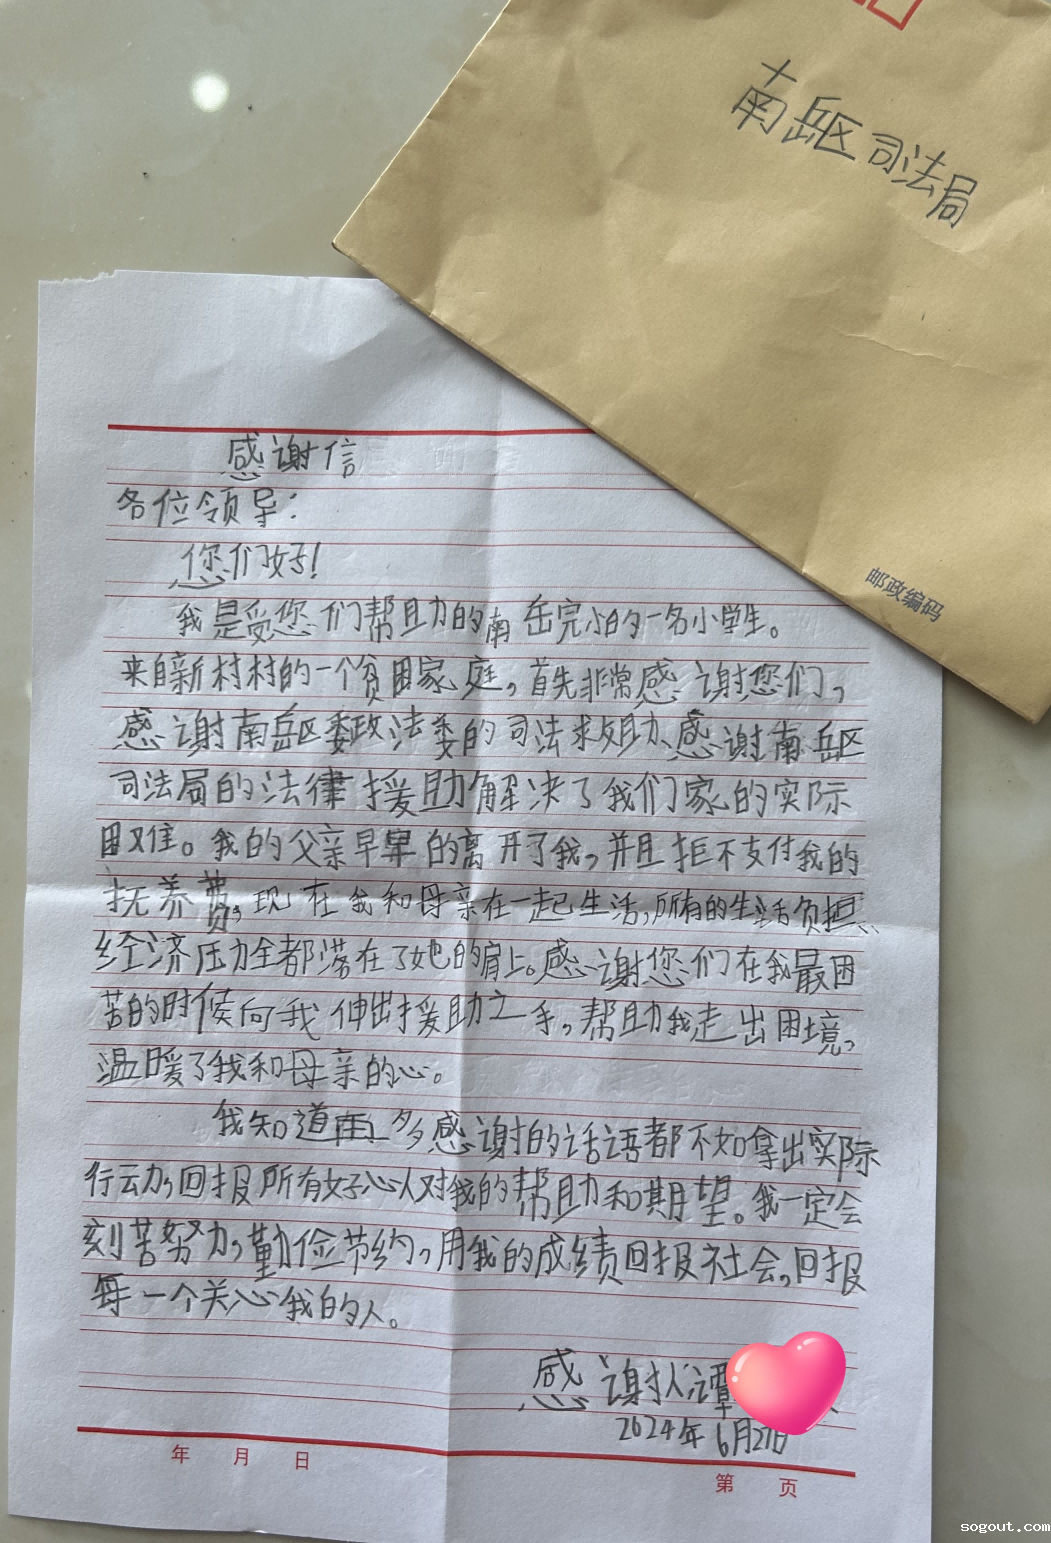 南岳区司法局
邮政编码
感谢信
各位领导：
您们好！
我是受您们帮助的南岳完小的一名小学生。
来自新村村的一个贫困家庭，首先非常感谢您们，
感谢南岳区委政法委的司法求助、感谢南岳区
司法局的法律援助解决了我们家的实际
困难。我的父亲早早的离开了我，并且拒不支付我的
抚养费，现在我和母亲在一起生活，所有的生活负担、
经济压力全都落在了她的肩上。感谢您们在我最困
苦的时候向我伸出援助之手，帮助我走出困境，
温暖了我和母亲的心。
我知道再多感谢的话语都不如拿出实际
行云力，回报所有好心人对我的帮助和期望。我一定会
刻苦努力，勤俭节约，用我的成绩回报社会，回报
每一个关心我的人。
感谢人：谭
2024年6月27日
年 月 日
第 页
sogout.com